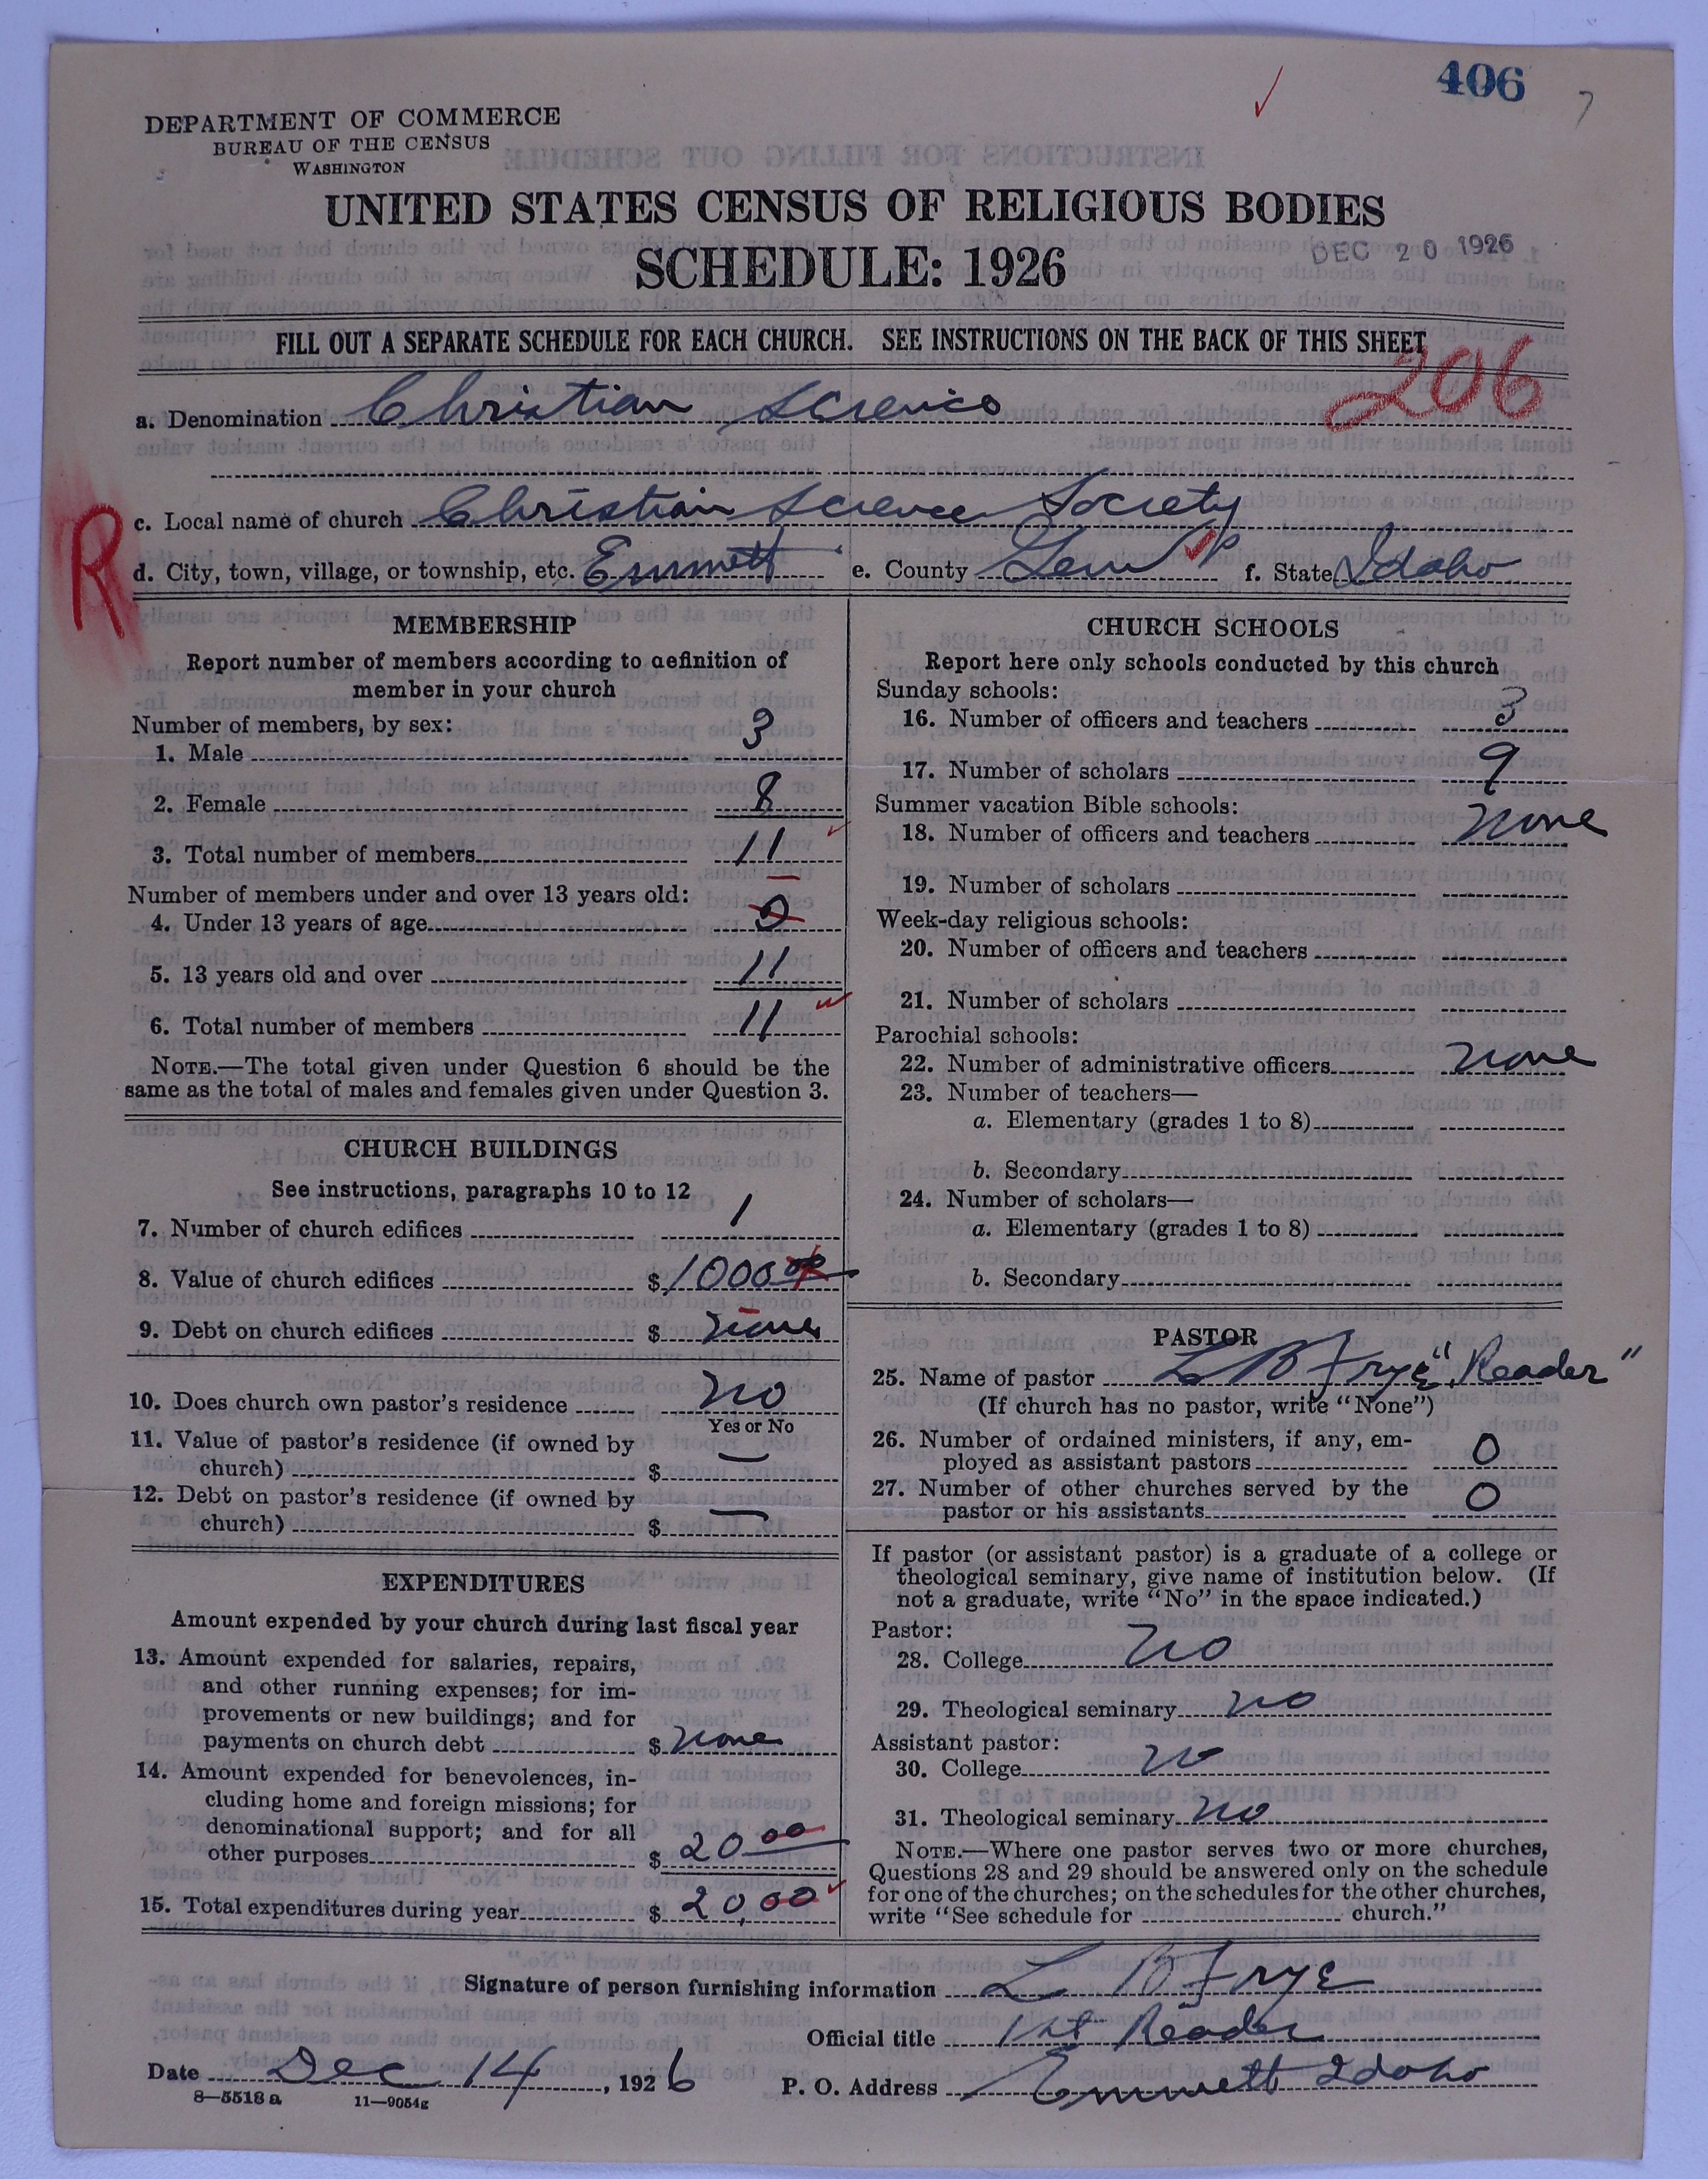 406
DEPARTMENT OF COMMERCE
BUREAU OF THE CENSUS
WASHINGTON
UNITED STATES CENSUS OF RELIGIOUS BODIES
SCHEDULE: 1926
DEC 20 1926
FILL OUT A SEPARATE SCHEDULE FOR EACH CHURCH. SEE INSTRUCTIONS ON THE BACK OF THIS SHEET
206
a. Denomination Christian Science
R
c. Local name of church Christian Science Society
d. City, town, village, or township, etc. Emmett e. County Gem f. State Idaho
MEMBERSHIP
Report number of members according to definition of
member in your church
Number of members, by sex:
1. Male 3
2. Female 8
3. Total number of members 11
Number of members under and over 13 years old:
4. Under 13 years of age 0
5. 13 years old and over 11
6. Total number of members 11
NOTE.—The total given under Question 6 should be the
same as the total of males and females given under Question 3.
CHURCH BUILDINGS
See instructions, paragraphs 10 to 12
7. Number of church edifices 1
8. Value of church edifices $ 1000 00
9. Debt on church edifices $ none
10. Does church own pastor's residence no
Yes or No
11. Value of pastor's residence (if owned by
church) $ —
12. Debt on pastor's residence (if owned by
church) $ —
EXPENDITURES
Amount expended by your church during last fiscal year
13. Amount expended for salaries, repairs,
and other running expenses; for im-
provements or new buildings; and for
payments on church debt $ none
14. Amount expended for benevolences, in-
cluding home and foreign missions; for
denominational support; and for all
other purposes $ 20 00
15. Total expenditures during year $ 20,00
CHURCH SCHOOLS
Report here only schools conducted by this church
Sunday schools:
16. Number of officers and teachers 3
17. Number of scholars 9
Summer vacation Bible schools:
18. Number of officers and teachers none
19. Number of scholars
Week-day religious schools:
20. Number of officers and teachers
21. Number of scholars
Parochial schools:
22. Number of administrative officers none
23. Number of teachers—
a. Elementary (grades 1 to 8)
b. Secondary
24. Number of scholars—
a. Elementary (grades 1 to 8)
b. Secondary
PASTOR
25. Name of pastor L B Frye "Reader"
(If church has no pastor, write "None")
26. Number of ordained ministers, if any, em-
ployed as assistant pastors 0
27. Number of other churches served by the
pastor or his assistants 0
If pastor (or assistant pastor) is a graduate of a college or
theological seminary, give name of institution below. (If
not a graduate, write "No" in the space indicated.)
Pastor:
28. College no
29. Theological seminary no
Assistant pastor:
30. College no
31. Theological seminary no
NOTE.—Where one pastor serves two or more churches,
Questions 28 and 29 should be answered only on the schedule
for one of the churches; on the schedules for the other churches,
write "See schedule for church."
Signature of person furnishing information L B Frye
Official title 1st Reader
Date Dec 14, 1926 P. O. Address Emmett Idaho
8—5518 a 11—9054g